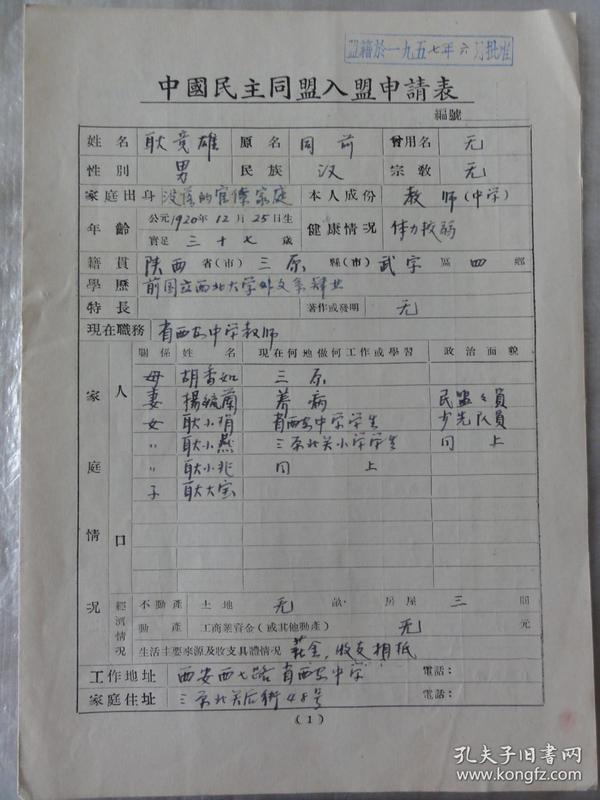 盟籍於一九五七年六月批准
中國民主同盟入盟申請表
編號
姓名 耿竞雄 原名 同前 曾用名 无
性別 男 民族 汉 宗教 无
家庭出身 没落的官僚家庭 本人成份 教师(中学)
年齡 公元1920年12月25日生 實足三十七歲 健康情況 体力较弱
籍貫 陕西省(市) 三原縣(市) 武字區 四鄉
學歷 前国立西北大学外文系肄业
特長 著作或發明 无
現在職務 省西安中学教师
家庭情況 人口 關係 姓名 現在何地做何工作或學習 政治面貌
母 胡香如 三原
妻 楊毓蘭 养病 民盟盟員
女 耿小梢 省西安中学学生 少先队員
〃 耿小燕 三原北关小学学生 同上
〃 耿小兆 同上
子 耿大宝
經濟情況 不動產 土地 无 畝 房屋 三 間
動產 工商業資金(或其他動產) 无 元
生活主要來源及收支具體情況 薪金,收支相抵
工作地址 西安西七路省西安中学 電話:
家庭住址 三原北关后街48号 電話:
(1)
孔夫子旧书网
www.kongfz.com